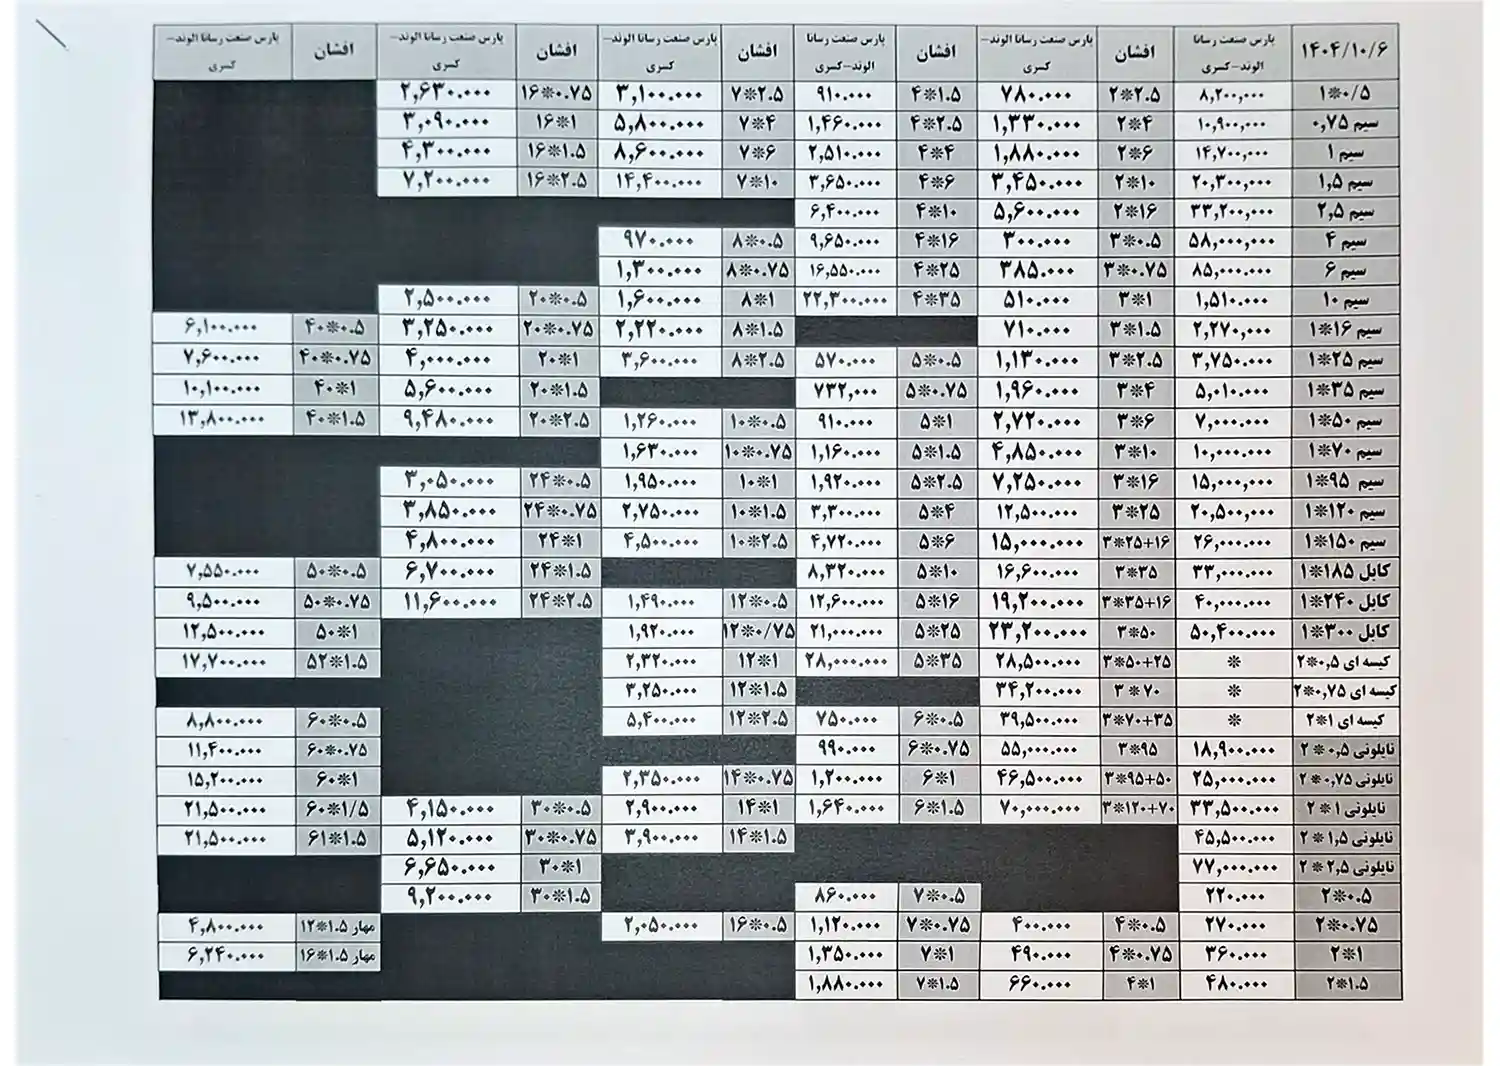 ۱۴۰۴/۱۰/۶ پارس صنعت رسانا الوند-کسری افشان پارس صنعت رسانا الوند-کسری افشان پارس صنعت رسانا الوند-کسری افشان پارس صنعت رسانا الوند-کسری افشان پارس صنعت رسانا الوند-کسری افشان پارس صنعت رسانا الوند-کسری
۱*۰/۵ ۸,۲۰۰,۰۰۰ ۲*۲.۵ ۷۸۰.۰۰۰ ۴*۱.۵ ۹۱۰.۰۰۰ ۷*۲.۵ ۳,۱۰۰.۰۰۰ ۱۶*۰.۷۵ ۲,۶۳۰.۰۰۰
سیم ۰,۷۵ ۱۰,۹۰۰,۰۰۰ ۲*۴ ۱,۳۳۰.۰۰۰ ۴*۲.۵ ۱,۴۶۰.۰۰۰ ۷*۴ ۵,۸۰۰.۰۰۰ ۱۶*۱ ۳,۰۹۰.۰۰۰
سیم ۱ ۱۴,۷۰۰,۰۰۰ ۲*۶ ۱,۸۸۰.۰۰۰ ۴*۴ ۲,۵۱۰.۰۰۰ ۷*۶ ۸,۶۰۰.۰۰۰ ۱۶*۱.۵ ۴,۳۰۰.۰۰۰
سیم ۱,۵ ۲۰,۳۰۰,۰۰۰ ۲*۱۰ ۳,۴۵۰.۰۰۰ ۴*۶ ۳,۶۵۰.۰۰۰ ۷*۱۰ ۱۴,۴۰۰.۰۰۰ ۱۶*۲.۵ ۷,۲۰۰.۰۰۰
سیم ۲,۵ ۳۳,۲۰۰,۰۰۰ ۲*۱۶ ۵,۶۰۰.۰۰۰ ۴*۱۰ ۶,۴۰۰.۰۰۰
سیم ۴ ۵۸,۰۰۰,۰۰۰ ۳*۰.۵ ۳۰۰.۰۰۰ ۴*۱۶ ۹,۶۵۰.۰۰۰ ۸*۰.۵ ۹۷۰.۰۰۰
سیم ۶ ۸۵,۰۰۰.۰۰۰ ۳*۰.۷۵ ۳۸۵.۰۰۰ ۴*۲۵ ۱۶,۵۵۰.۰۰۰ ۸*۰.۷۵ ۱,۳۰۰.۰۰۰
سیم ۱۰ ۱,۵۱۰.۰۰۰ ۳*۱ ۵۱۰.۰۰۰ ۴*۳۵ ۲۲,۳۰۰.۰۰۰ ۸*۱ ۱,۶۰۰.۰۰۰ ۲۰*۰.۵ ۲,۵۰۰.۰۰۰
سیم ۱۶*۱ ۲,۲۷۰,۰۰۰ ۳*۱.۵ ۷۱۰.۰۰۰ ۸*۱.۵ ۲,۲۲۰.۰۰۰ ۲۰*۰.۷۵ ۳,۲۵۰.۰۰۰ ۴۰*۰.۵ ۶,۱۰۰.۰۰۰
سیم ۲۵*۱ ۳,۷۵۰.۰۰۰ ۳*۲.۵ ۱,۱۳۰.۰۰۰ ۵*۰.۵ ۵۷۰.۰۰۰ ۸*۲.۵ ۳,۶۰۰.۰۰۰ ۲۰*۱ ۴,۰۰۰.۰۰۰ ۴۰*۰.۷۵ ۷,۶۰۰.۰۰۰
سیم ۳۵*۱ ۵,۰۱۰.۰۰۰ ۳*۴ ۱,۹۶۰.۰۰۰ ۵*۰.۷۵ ۷۳۲,۰۰۰ ۲۰*۱.۵ ۵,۶۰۰.۰۰۰ ۴۰*۱ ۱۰,۱۰۰.۰۰۰
سیم ۵۰*۱ ۷,۰۰۰.۰۰۰ ۳*۶ ۲,۷۲۰.۰۰۰ ۵*۱ ۹۱۰.۰۰۰ ۱۰*۰.۵ ۱,۲۶۰.۰۰۰ ۲۰*۲.۵ ۹,۴۸۰.۰۰۰ ۴۰*۱.۵ ۱۳,۸۰۰.۰۰۰
سیم ۷۰*۱ ۱۰,۰۰۰.۰۰۰ ۳*۱۰ ۴,۸۵۰.۰۰۰ ۵*۱.۵ ۱,۱۶۰.۰۰۰ ۱۰*۰.۷۵ ۱,۶۳۰.۰۰۰
سیم ۹۵*۱ ۱۵,۰۰۰,۰۰۰ ۳*۱۶ ۷,۲۵۰.۰۰۰ ۵*۲.۵ ۱,۹۲۰.۰۰۰ ۱۰*۱ ۱,۹۵۰.۰۰۰ ۲۴*۰.۵ ۳,۰۵۰.۰۰۰
سیم ۱۲۰*۱ ۲۰,۵۰۰,۰۰۰ ۳*۲۵ ۱۲,۵۰۰.۰۰۰ ۵*۴ ۳,۳۰۰.۰۰۰ ۱۰*۱.۵ ۲,۷۵۰.۰۰۰ ۲۴*۰.۷۵ ۳,۸۵۰.۰۰۰
سیم ۱۵۰*۱ ۲۶,۰۰۰.۰۰۰ ۳*۲۵+۱۶ ۱۵,۰۰۰.۰۰۰ ۵*۶ ۴,۷۲۰.۰۰۰ ۱۰*۲.۵ ۴,۵۰۰.۰۰۰ ۲۴*۱ ۴,۸۰۰.۰۰۰
کابل ۱۸۵*۱ ۳۳,۰۰۰.۰۰۰ ۳*۳۵ ۱۶,۶۰۰.۰۰۰ ۵*۱۰ ۸,۳۲۰.۰۰۰ ۲۴*۱.۵ ۶,۷۰۰.۰۰۰ ۵۰*۰.۵ ۷,۵۵۰.۰۰۰
کابل ۲۴۰*۱ ۴۰,۰۰۰.۰۰۰ ۳*۳۵+۱۶ ۱۹,۲۰۰.۰۰۰ ۵*۱۶ ۱۲,۶۰۰.۰۰۰ ۱۲*۰.۵ ۱,۴۹۰.۰۰۰ ۲۴*۲.۵ ۱۱,۶۰۰.۰۰۰ ۵۰*۰.۷۵ ۹,۵۰۰.۰۰۰
کابل ۳۰۰*۱ ۵۰,۴۰۰.۰۰۰ ۳*۵۰ ۲۳,۲۰۰.۰۰۰ ۵*۲۵ ۲۱,۰۰۰.۰۰۰ ۱۲*۰/۷۵ ۱,۹۲۰.۰۰۰ ۵۰*۱ ۱۲,۵۰۰.۰۰۰
کیسه ای ۰,۵*۲ * ۳*۵۰+۲۵ ۲۸,۵۰۰.۰۰۰ ۵*۳۵ ۲۸,۰۰۰.۰۰۰ ۱۲*۱ ۲,۳۲۰.۰۰۰ ۵۲*۱.۵ ۱۷,۷۰۰.۰۰۰
کیسه ای ۰,۷۵*۲ * ۳*۷۰ ۳۴,۲۰۰.۰۰۰ ۱۲*۱.۵ ۳,۲۵۰.۰۰۰
کیسه ای ۱*۲ * ۳*۷۰+۳۵ ۳۹,۵۰۰.۰۰۰ ۶*۰.۵ ۷۵۰.۰۰۰ ۱۲*۲.۵ ۵,۴۰۰.۰۰۰ ۶۰*۰.۵ ۸,۸۰۰.۰۰۰
نایلونی ۰,۵*۲ ۱۸,۹۰۰.۰۰۰ ۳*۹۵ ۵۵,۰۰۰.۰۰۰ ۶*۰.۷۵ ۹۹۰.۰۰۰ ۶۰*۰.۷۵ ۱۱,۴۰۰.۰۰۰
نایلونی ۰,۷۵*۲ ۲۵,۰۰۰.۰۰۰ ۳*۹۵+۵۰ ۴۶,۵۰۰.۰۰۰ ۶*۱ ۱,۲۰۰.۰۰۰ ۱۴*۰.۷۵ ۲,۳۵۰.۰۰۰ ۶۰*۱ ۱۵,۲۰۰.۰۰۰
نایلونی ۱*۲ ۳۳,۵۰۰.۰۰۰ ۳*۱۲۰+۷۰ ۷۰,۰۰۰.۰۰۰ ۶*۱.۵ ۱,۶۴۰.۰۰۰ ۱۴*۱ ۲,۹۰۰.۰۰۰ ۳۰*۰.۵ ۴,۱۵۰.۰۰۰ ۶۰*۱/۵ ۲۱,۵۰۰.۰۰۰
نایلونی ۱,۵*۲ ۴۵,۵۰۰.۰۰۰ ۱۴*۱.۵ ۳,۹۰۰.۰۰۰ ۳۰*۰.۷۵ ۵,۱۲۰.۰۰۰ ۶۱*۱.۵ ۲۱,۵۰۰.۰۰۰
نایلونی ۲,۵*۲ ۷۷,۰۰۰.۰۰۰ ۳۰*۱ ۶,۶۵۰.۰۰۰
۲*۰.۵ ۲۲۰.۰۰۰ ۷*۰.۵ ۸۶۰.۰۰۰ ۳۰*۱.۵ ۹,۲۰۰.۰۰۰
۲*۰.۷۵ ۲۷۰.۰۰۰ ۴*۰.۵ ۴۰۰.۰۰۰ ۷*۰.۷۵ ۱,۱۲۰.۰۰۰ ۱۶*۰.۵ ۲,۰۵۰.۰۰۰ مهار ۱.۵*۱۲ ۴,۸۰۰.۰۰۰
۲*۱ ۳۶۰.۰۰۰ ۴*۰.۷۵ ۴۹۰.۰۰۰ ۷*۱ ۱,۳۵۰.۰۰۰ مهار ۱.۵*۱۶ ۶,۲۴۰.۰۰۰
۲*۱.۵ ۴۸۰.۰۰۰ ۴*۱ ۶۶۰.۰۰۰ ۷*۱.۵ ۱,۸۸۰.۰۰۰